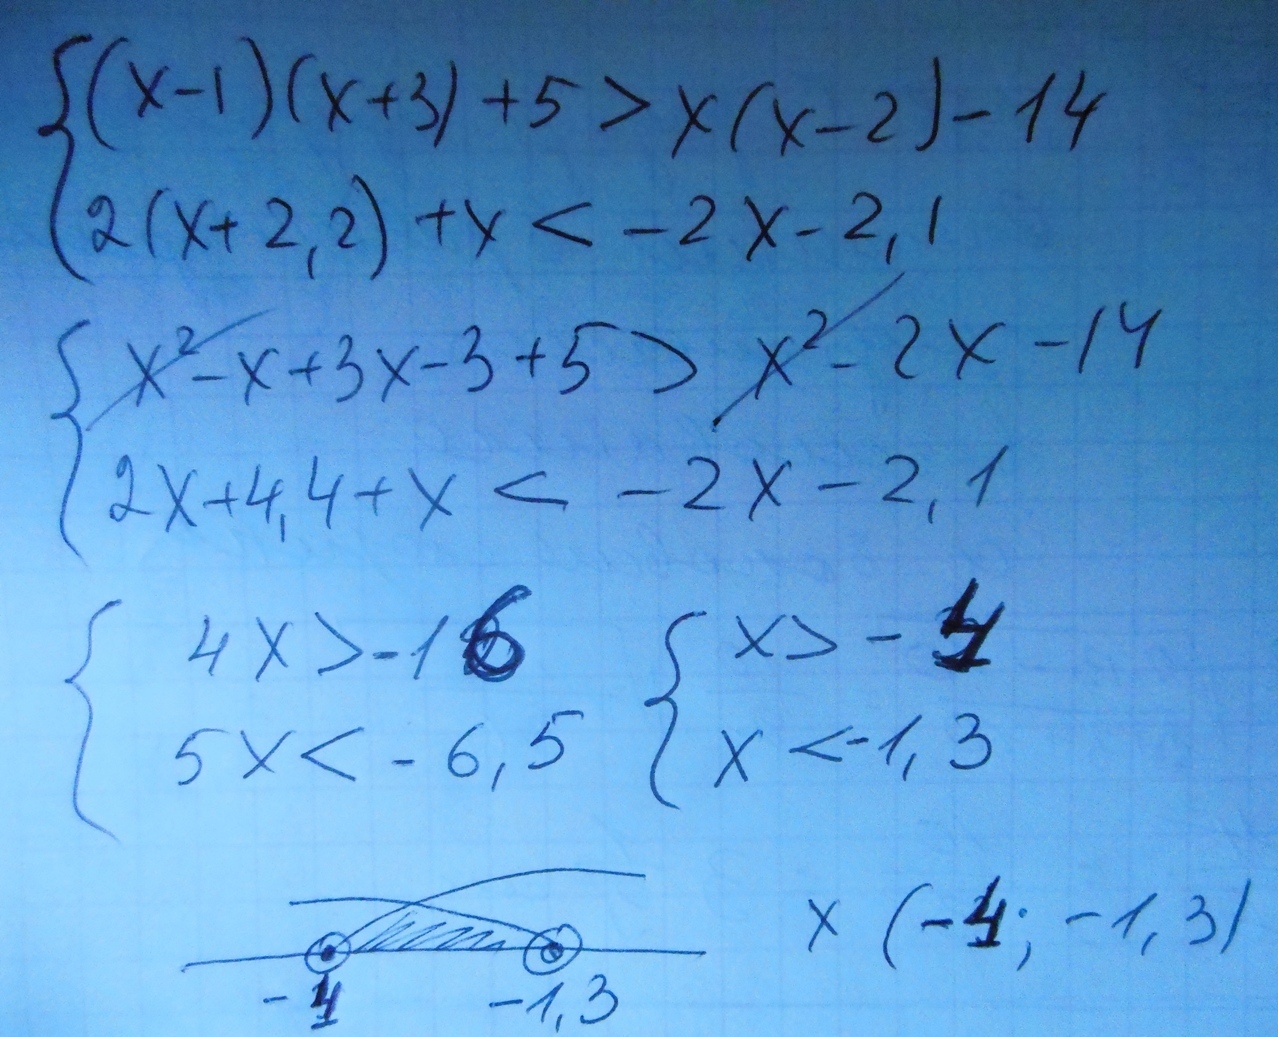 {(x-1)(x+3)+5>x(x-2)-14
2(x+2,2)+x<-2x-2,1
{x²-x+3x-3+5>x²-2x-14
2x+4,4+x<-2x-2,1
{4x>-16 {x>-4
5x<-6,5 x<-1,3
x (-4; -1,3)
-4 -1,3